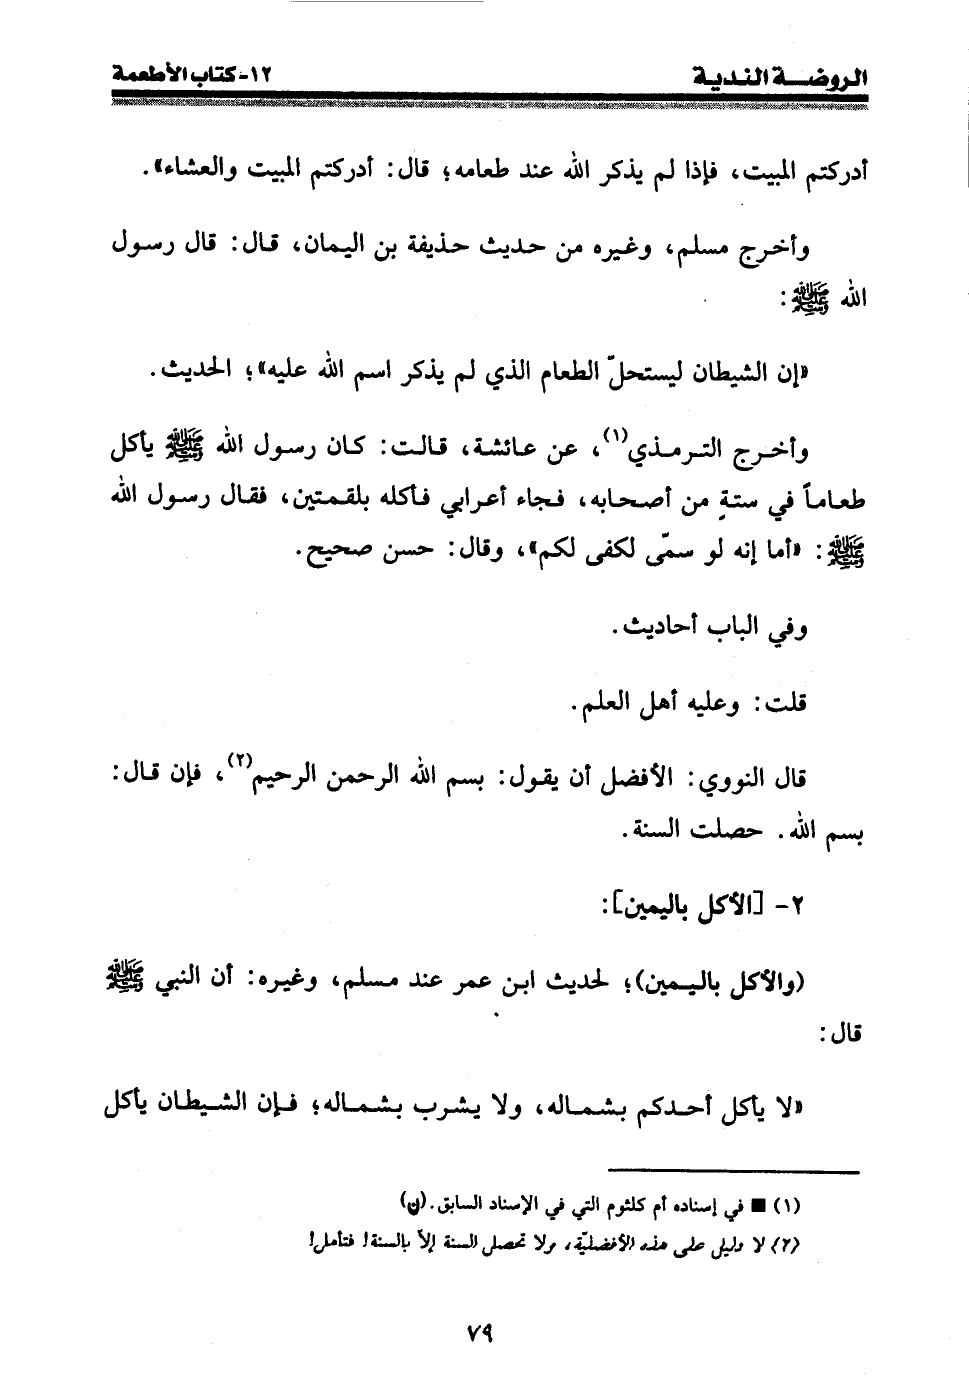 الروضة الندية
١٢- كتاب الأطعمة
أدركتم المبيت، فإذا لم يذكر الله عند طعامه؛ قال: أدركتم المبيت والعشاء».
وأخرج مسلم، وغيره من حديث حذيفة بن اليمان، قال: قال رسول
الله ﷺ:
«إن الشيطان ليستحلّ الطعام الذي لم يذكر اسم الله عليه»؛ الحديث.
وأخرج الترمذي(١)، عن عائشة، قالت: كان رسول الله ﷺ يأكل
طعاماً في ستةٍ من أصحابه، فجاء أعرابي فأكله بلقمتين، فقال رسول الله
ﷺ: «أما إنه لو سمّى لكفى لكم»، وقال: حسن صحيح.
وفي الباب أحاديث.
قلت: وعليه أهل العلم.
قال النووي: الأفضل أن يقول: بسم الله الرحمن الرحيم(٢)، فإن قال:
بسم الله. حصلت السنة.
٢- [الأكل باليمين]:
(والأكل باليمين)؛ لحديث ابن عمر عند مسلم، وغيره: أن النبي ﷺ
قال:
«لا يأكل أحدكم بشماله، ولا يشرب بشماله؛ فإن الشيطان يأكل
(١) ■ في إسناده أم كلثوم التي في الإسناد السابق.(ن)
(٢) لا دليل على هذه الأفضليّة، ولا تحصل السنة إلاّ بالسنة! فتأمل!
٧٩